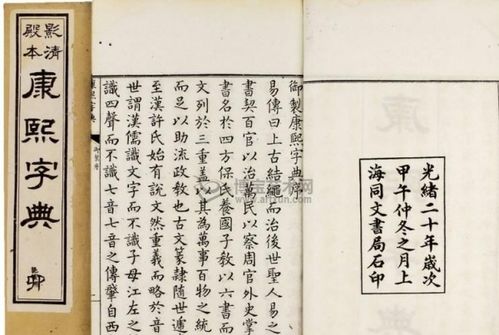 影清
殿本
康熙字典
光緒二十年歲次
甲午仲冬之月上
海同文書局石印
御製康熙字典序
易傳曰上古結繩而治後世聖人易之
書契百官以治萬民以察周官外史掌
書名於四方保氏養國子敎以六書而
文列於三重蓋以其為萬事百物之統
而足以助流政敎也古文篆隷隨世遞
至漢許氏始有說文然重義而略於音
世謂漢儒識文字而不識子母江左之
識四聲而不識七音七音之傳肇自西
康熙字典